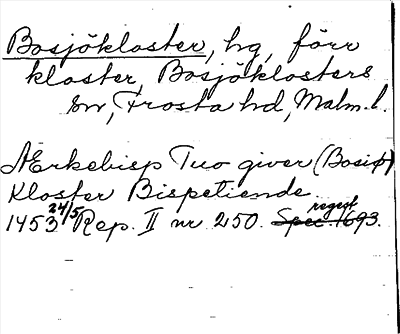 Bosjökloster, hg, förr
kloster, Bosjöklosters
sn, Frosta hd, Malm. l.
Ærkebisp Tuo giver (Bosiø)
Kloster Bispetiende.
1453 24/5 Rep. II nr 250. Spec. regest 1693.